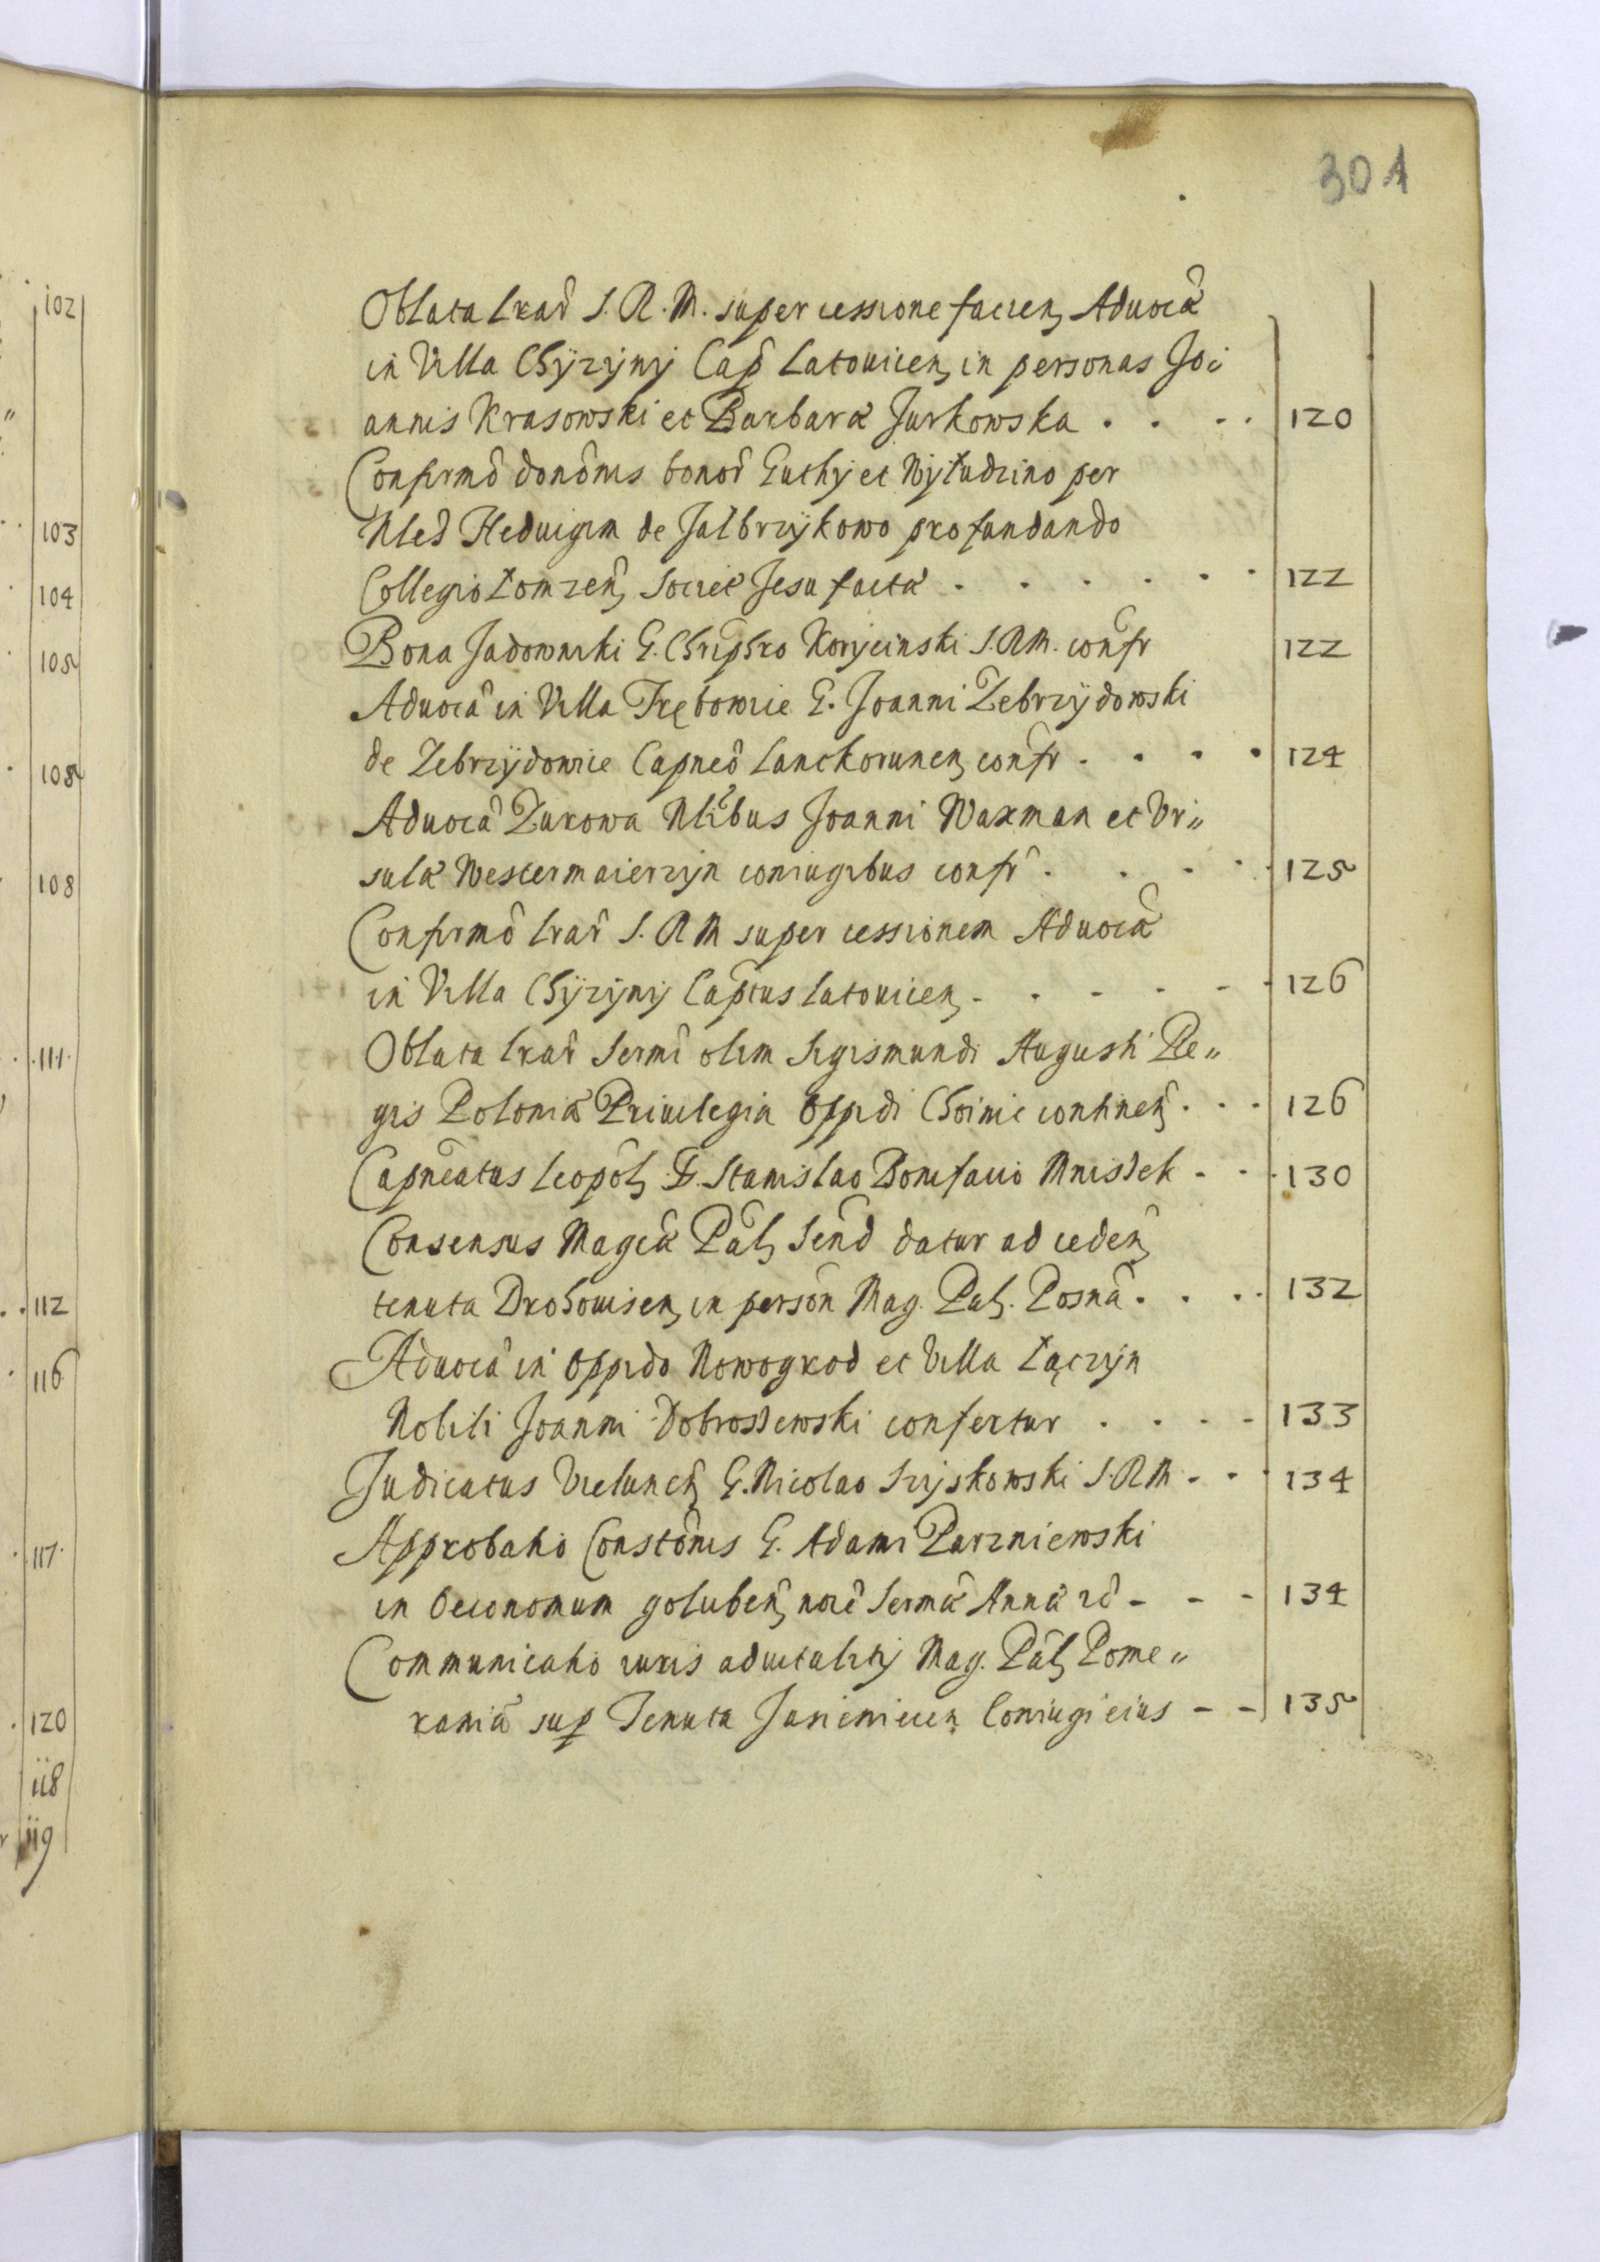 301
Oblata Lrar̃ S. R. M. super cessione facien, Aduocã
in Villa Chÿzÿnÿ Cap̃ Latouicen, in personas Jo:
annis Krasowski et Barbaræ Jurkowska . . . . 120
Confirmõ donõnis bonor̃ Guthÿ et Wÿłudzino per
Nles̃ Heduigim de Jałbrzÿkowo pro fundando
Collegio Łomzen̄, Sociẽt Jesu facta . . . . . . 122
Bona Jadowniki G. Chrip̃hro Korÿcinski S. RM. conf̃r 122
Aduocã in Villa Trębowie G. Joanni Zebrzÿdowski
de Zebrzÿdowie Capneõ Lanckorunen, conf̃r . . . . 124
Aduocã Zurowa Nlibus Joanni Waxman et Vr„
sulæ Westermaierzÿn coniugibus conf̃r . . . . 125
Confirmõ Lrar̃ S. RM super cessionem Aduocã
in Villa Chÿzÿnÿ Cap̃tus Latouicen, . . . . . . 126
Oblata Lrar̃ Sermĩ olim Sigismundi Augusti Re„
gis Poloniæ Priuilegia Oppidi Choinic continen̄, . . . 126
Capneatus Leopol, G. Stanislao Bonifacio Mniszek - - - 130
Consensus Magcæ Pãl, Send datur ad ceden̄,
tenuta Drohouisen, in persõn Mag. Pal. Posnã . . . . 132
Aduocã in Oppido Nowogrod et Villa Łączÿn
Nobili Joanni Dobroszewski confertur . . . - 133
Judicatus Vielunen̄, G. Nicolao Szÿskowski S. RM - - - 134
Approbatio Constõnis G. Adami Parzniewski
in Oeconomum goluben̄, noiẽ Sermæ Annæ rõ - - - 134
Communicatio iuris aduitalitÿ Mag. Pãl, Pome„
raniæ sup̲ Tenuta Jasieniecen, Coniugi eius - - 135
102
103
104
105
108
108
111
112
116
117
120
118
119